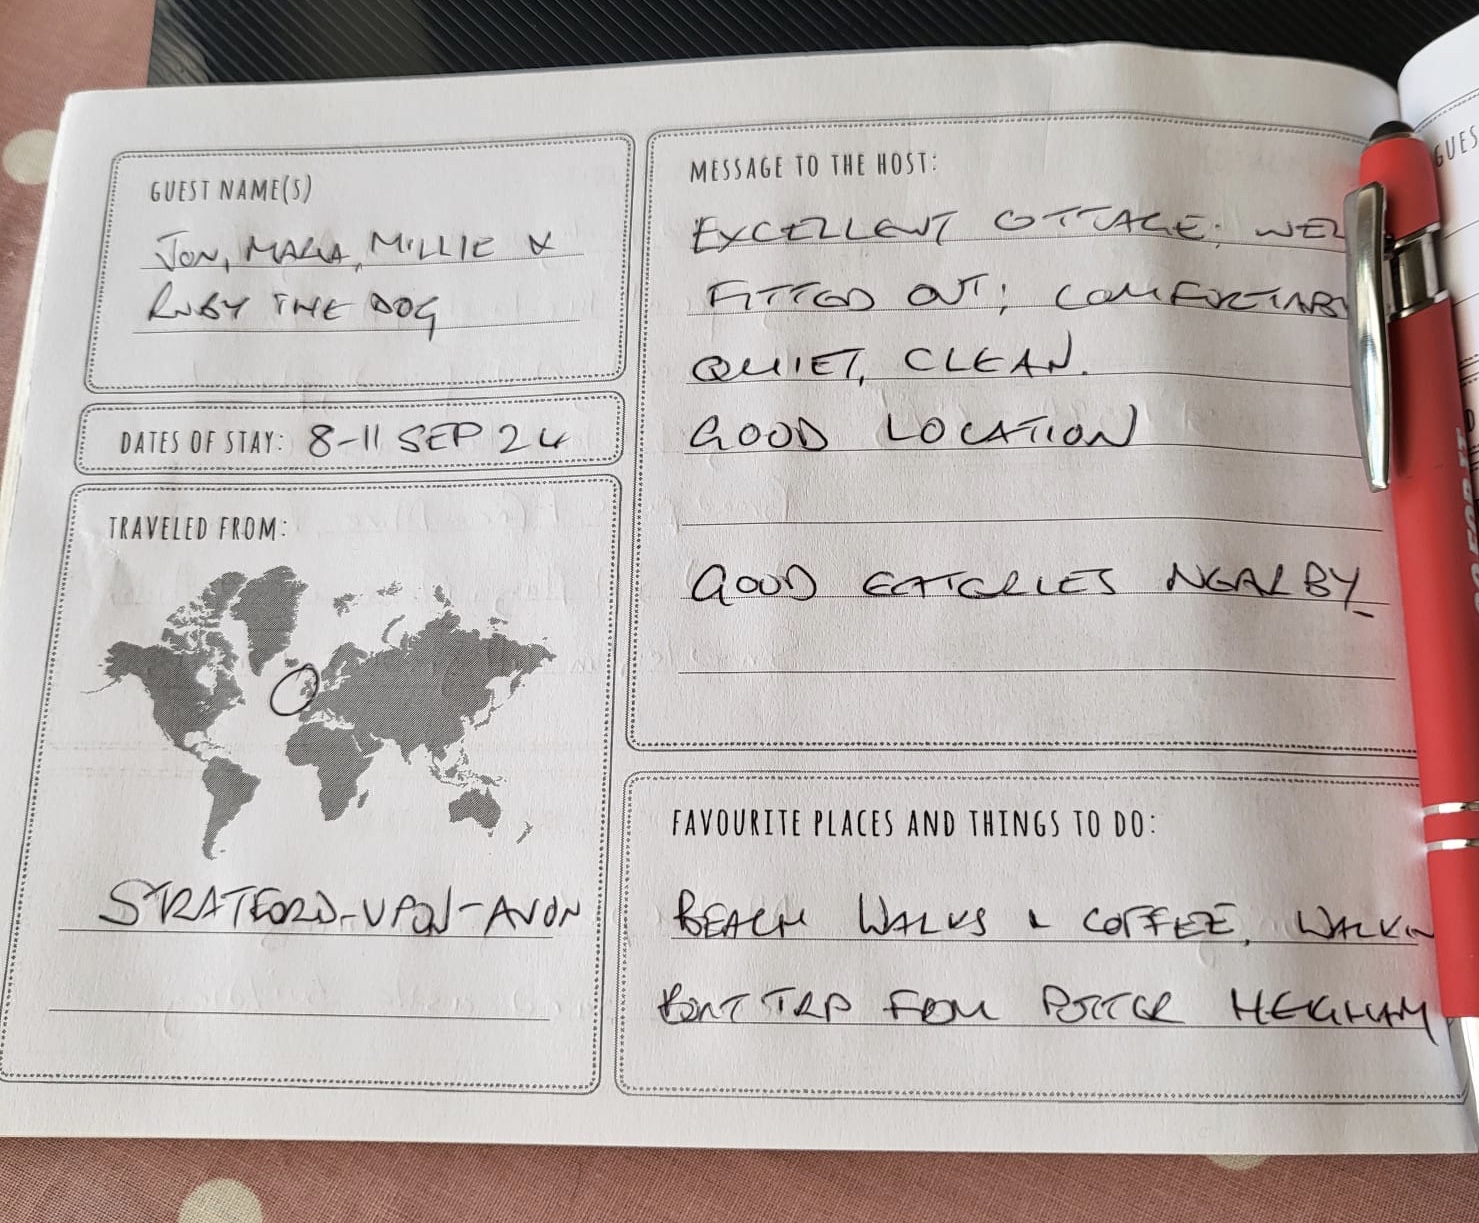 GUEST NAME(S)
JON, MARIA, MILLIE &
RUBY THE DOG
DATES OF STAY: 8-11 SEP 24
TRAVELED FROM:
STRATFORD-UPON-AVON
MESSAGE TO THE HOST:
EXCELLENT COTTAGE; WEL
FITTED OUT; COMFORTAB
QUIET, CLEAN.
GOOD LOCATION
GOOD EATERIES NEARBY
FAVOURITE PLACES AND THINGS TO DO:
BEACH WALKS & COFFEE, WALKIN
BOAT TRIP FROM POTTER HEIGHAM
GUES